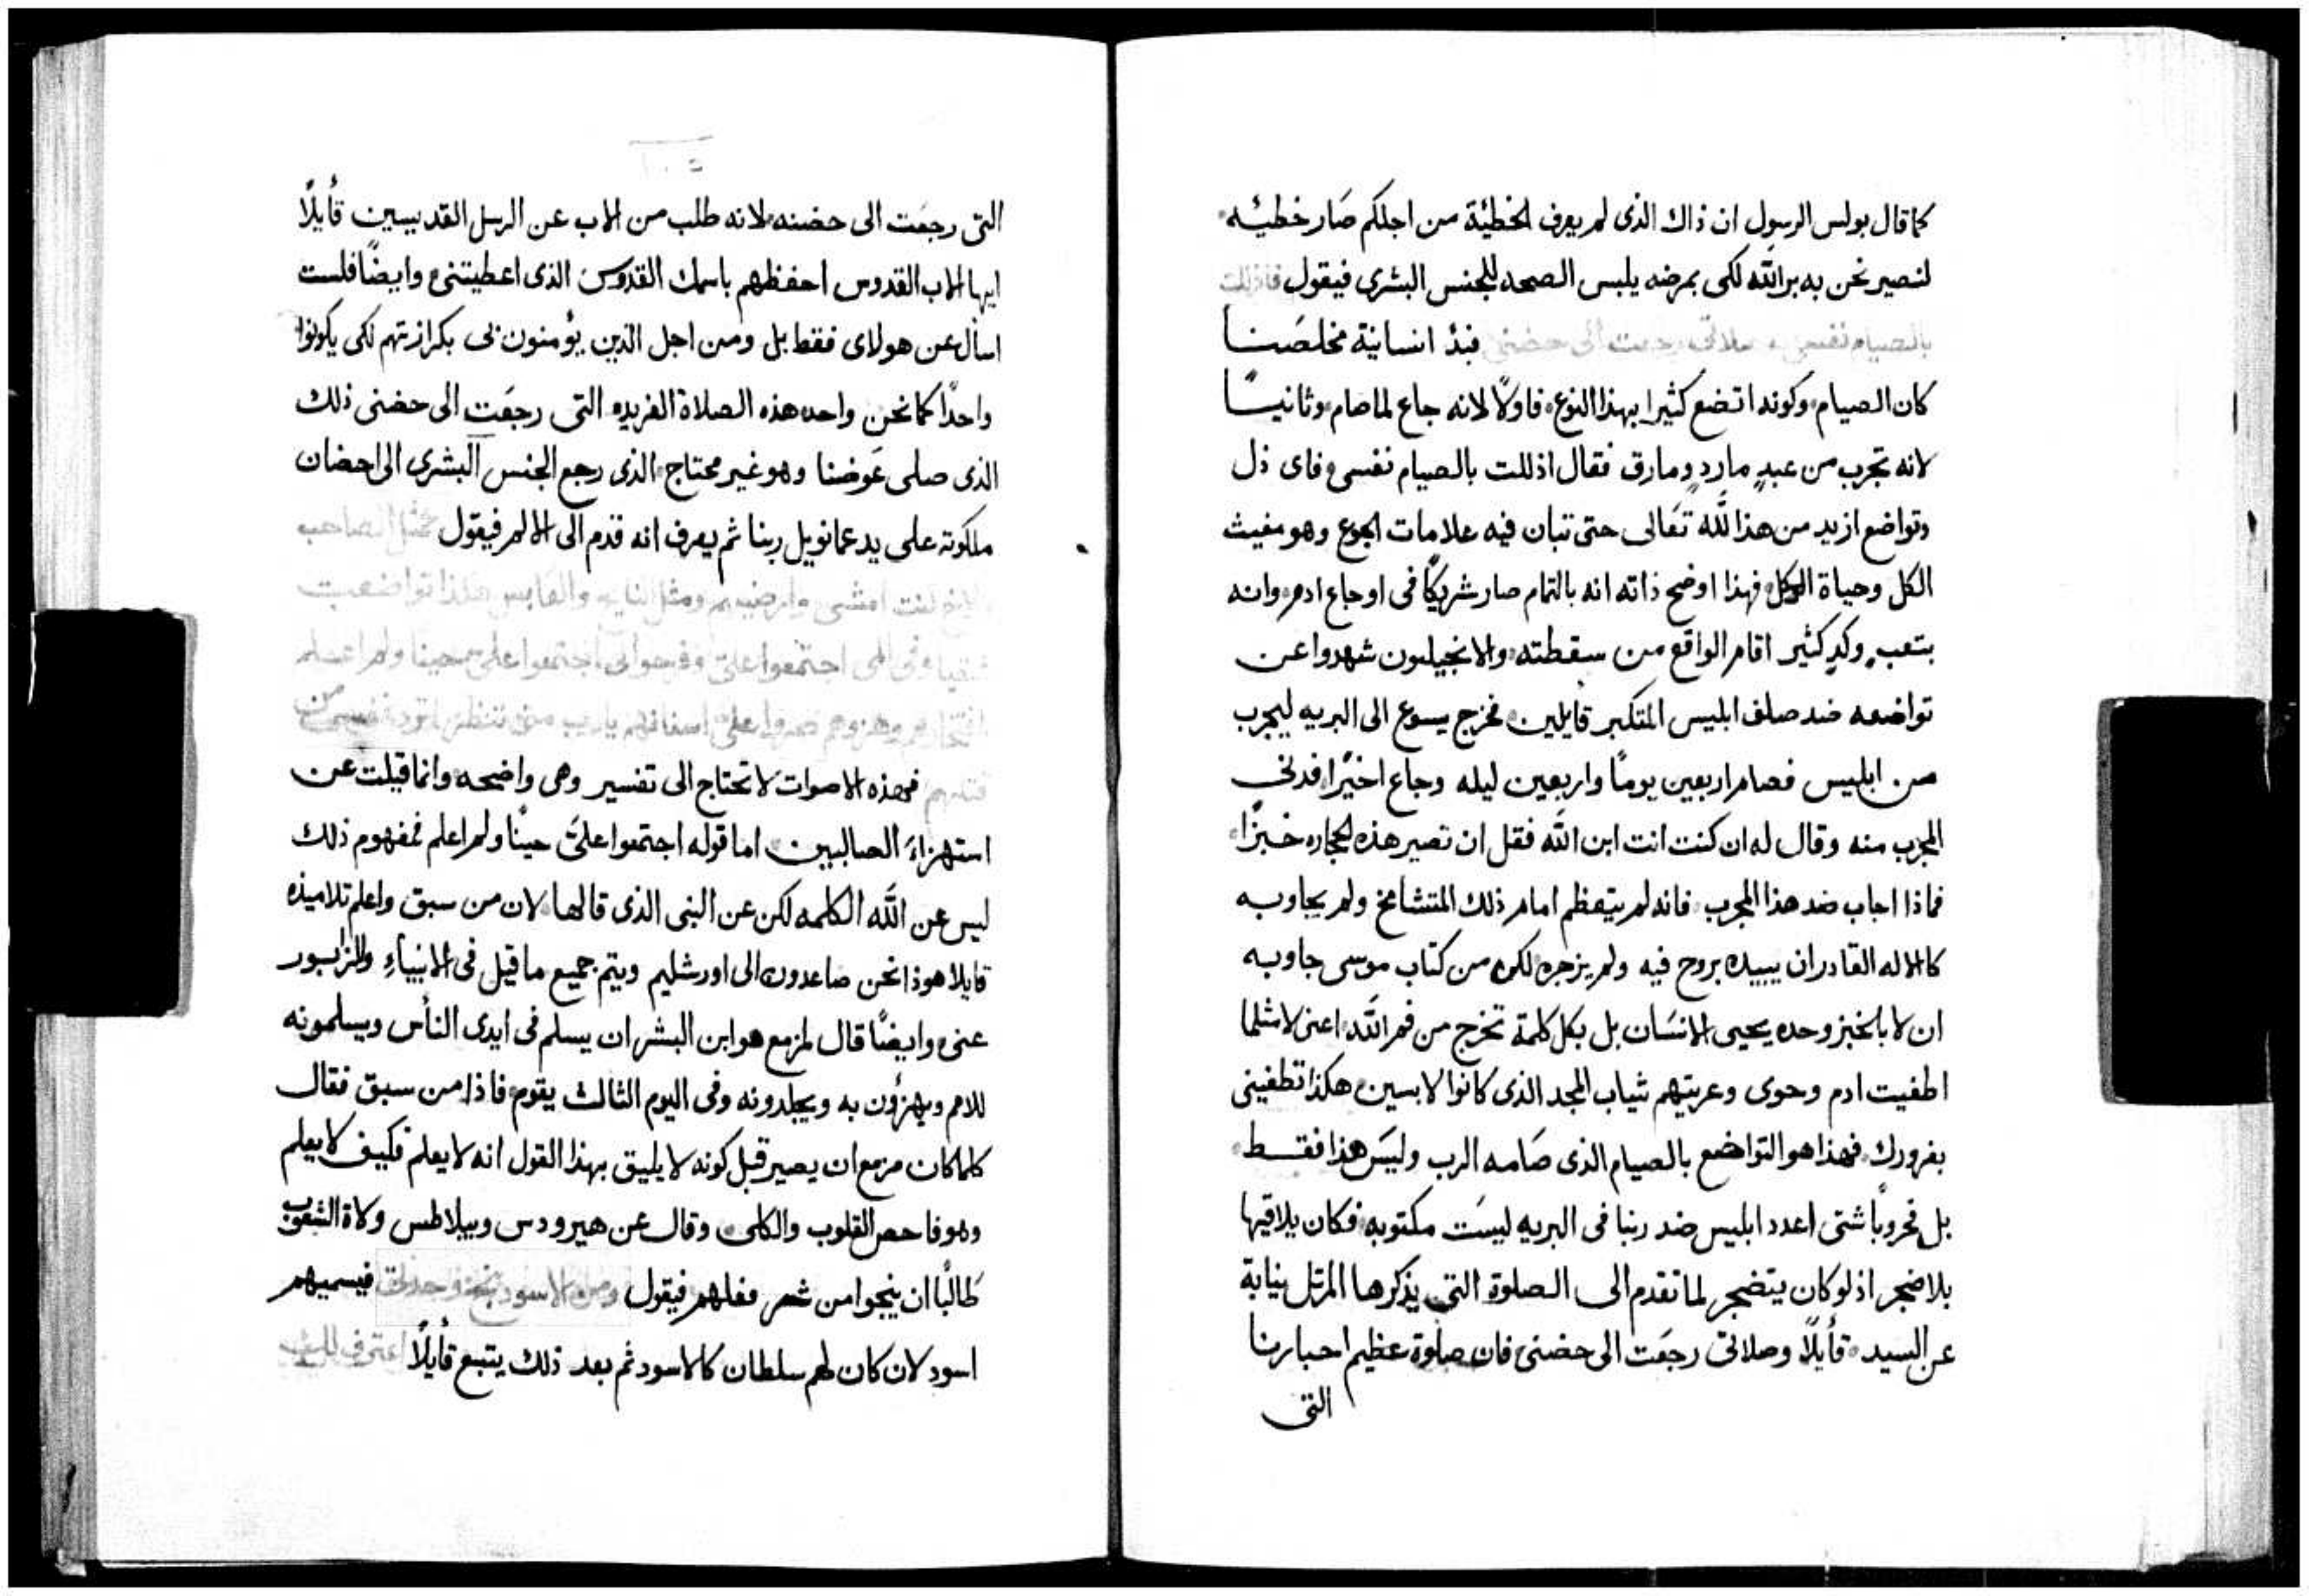 كما قال بولس الرسول ان ذاك الذى لم يعرف الخطيّة من اجلكم صَار خطيئه
لنصير نحن به بر اللّه لكى بمرضه يلبس الصحه للجنس البشرى فيقول فاذللت
بالصيام نفسى وصلاتى رجعت الى حضنى فبدٔ انسانية مخلصَنا
كان الصيام وكونه اتضع كثيرا بهذا النوع فاولًا لانه جاع لما صام وثانيًا
لانه تجرب من عبدٍ ماردٍ ومارق فقال اذللت بالصيام نفسى فاى ذل
وتواضع ازيد من هذا للّه تعَالى حتى تبان فيه علامات الجوع وهو مغيث
الكل وحياة الكل فهذا اوضح ذاته انه بالتمام صار شريكًا فى اوجاع ادم وانه
بتعبٍ وكدٍ كثير اقام الواقع من سقطته والانجيليون شهدوا عن
تواضعه ضد صلف ابليس المتكبر قايلين فخرج يسوع الى البريه ليجرب
من ابليس فصام اربعين يومًا واربعين ليله وجاع اخيرًا فدنى
المجرب منه وقال له ان كنت انت ابن اللّه فقل ان تصير هذه الحجاره خبزًا
فماذا اجاب ضد هذا المجرب فانه لم يتعظم امام ذلك المتشامخ ولم يجاوبه
كالاله القادر ان يبيده بروح فيه ولم يزجره لكن من كتاب موسى جاوبه
ان لا بالخبز وحده يحيى الانسَان بل بكل كلمة تخرج من فم اللّه اعنى لا مثلما
اطغيت ادم وحوى وعريتهم ثياب المجد الذى كانوا لابسين هكذا تطغينى
بغرورك فهذا هو التواضع بالصيام الذى صَامه الرب وليَس هذا فقط
بل فحروبًا شتى اعدد ابليس ضد ربنا فى البريه ليسَت مكتوبه فكان يلاقيها
بلا ضجر اذ لو كان يتضجر لما تقدم الى الصلوة التى يذكرها المرتل نيابة
عن السيد قأيلًا وصلاتى رجعَت الى حضنى فان صلوة عظيم احبارنا
التى
التى رجعَت الى حضنه لانه طلب من الاب عن الرسل القديسين قأيلًا
ايها الاب القدوس احفظهم باسمك القدوس الذى اعطيتنى وايضًا فلست
اسأل عن هولاى فقط بل ومن اجل الذين يؤمنون بى بكرازتهم لكى يكونوا
واحدًا كما نحن واحد هذه الصلاة الفريده التى رجعَت الى حضنى ذلك
الذى صلى عَوضنا وهو غير محتاج الذى رجع الجنس البشرى الى احضان
ملكوته على يد عمانويل ربنا ثم يعرف انه قدم الى الالم فيقول مثل الصاحب
كنت امشى وارضيهم ومثل النايح والعابس هكذا تواضعت
وفى المى اجتمعوا علىّ وفرحوا اجتمعوا علىّ حينا ولم اعلم
علىّ اسنانهم يا رب متى تنظر
فهذه الاصوات لا تحتاج الى تفسير وهى واضحه وانما قيلت عن
استهزاءَ الصالبين اما قوله اجتمعوا علىَّ حينًا ولم اعلم فمفهوم ذلك
ليس عن اللّه الكلمه لكن عن النبى الذى قالها لان من سبق واعلم تلاميذه
قايلا هوذا نحن صَاعدون الى اورشليم ويتم جميع ما قيل فى الانبياءِ والمزابور
عنى وايضًا قال لمزمع هو ابن البشر ان يسلم فى ايدى النأس ويسلمونه
للامم ويهزؤن به ويجلدونه وفى اليوم الثالث يقوم فاذا من سبق فقال
كلما كان مزمع ان يصير قبل كونه لا يليق بهذا القول انه لا يعلم فكيف لا يعلم
وهو فاحص القلوب والكلى وقال عن هيرودس وبيلاطس ولاة الشعوب
طَالبًا ان ينجوا من شر فعلهم فيقول ومن الاسود فيسميهم
اسود لان كان لهم سلطان كالاسود ثم بعد ذلك يتبع قأيلًا اعترف لك